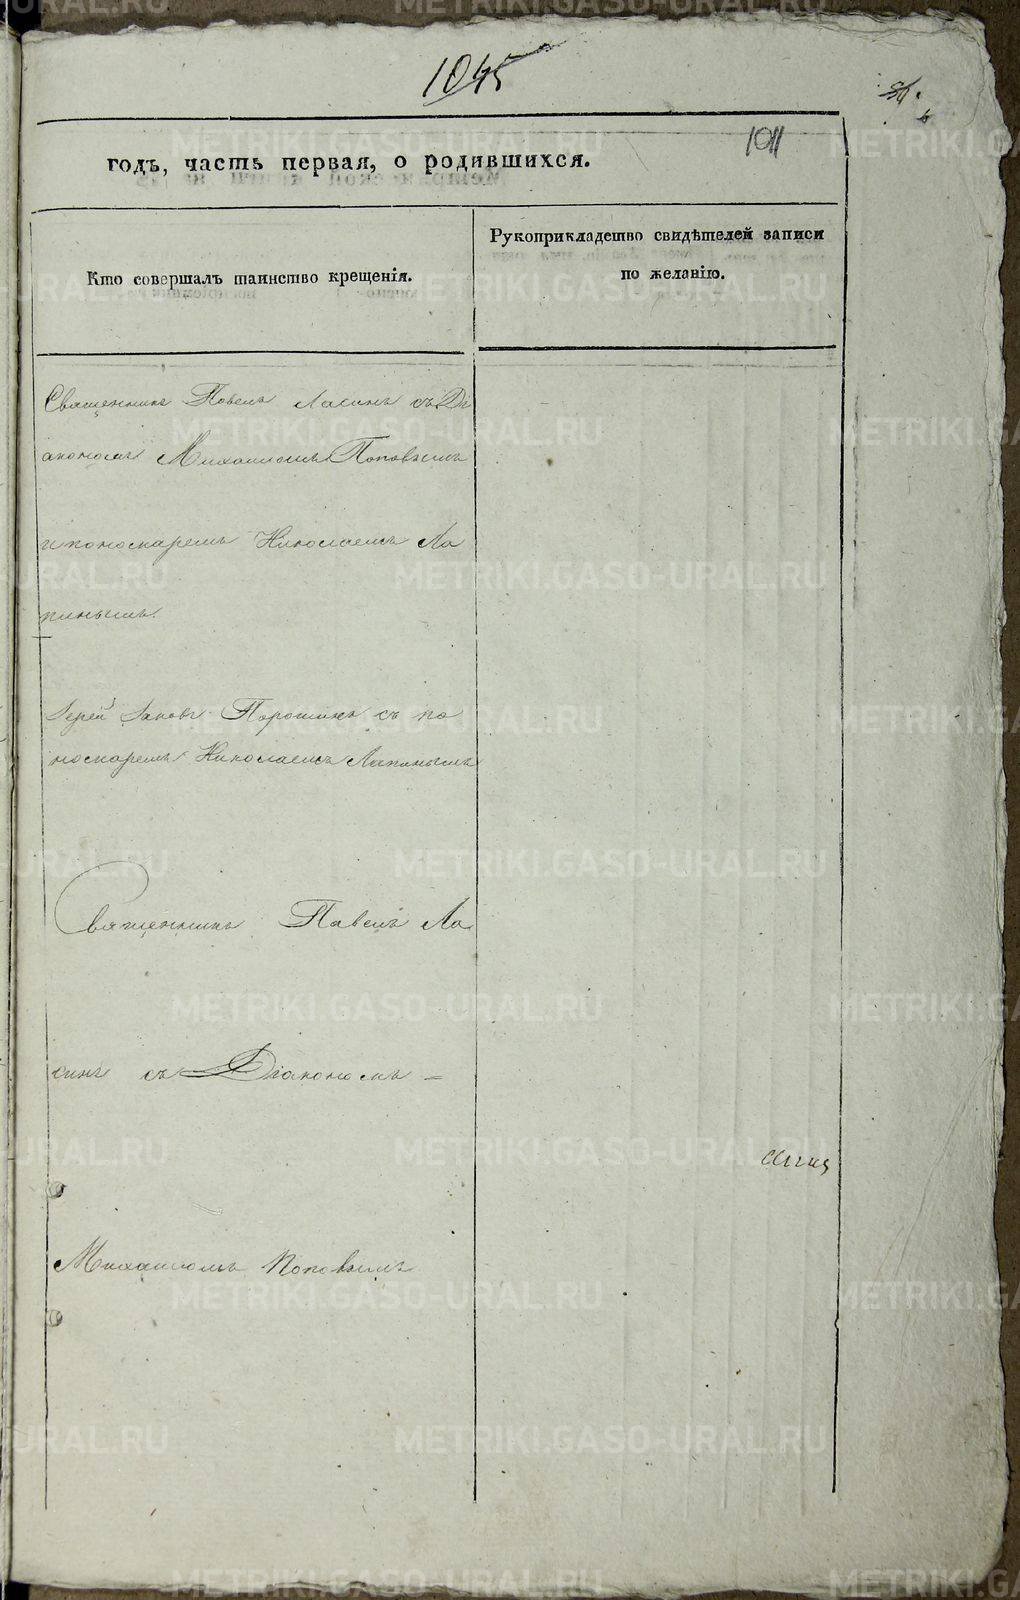 1045
1011
годъ, часть первая, о родившихся.
Кто совершалъ таинство крещенія.
Рукоприкладство свидѣтелей записи
по желанію.
Священникъ Павелъ Ласинъ съ Ді
акономъ Михаиломъ Поповымъ
и пономаремъ Николаемъ Ла
пинымъ.
Іерей Іаковъ Порошинъ съ по
номаремъ Николаемъ Лапинымъ
Священникъ Павелъ Ла
синъ съ Діакономъ =
Михаиломъ Поповымъ
METRIKI.GASO-URAL.RU